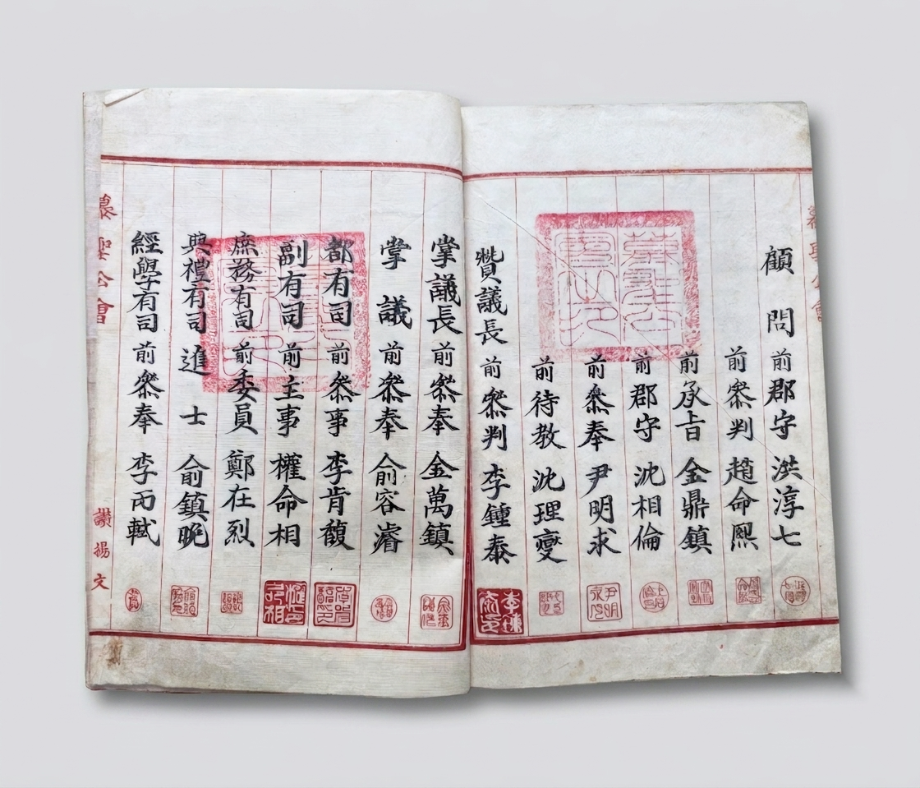 顧問 前郡守 洪淳七
前叅判 趙命熙
前承旨 金鼎鎮
前郡守 沈相倫
前叅奉 尹明求
前待教 沈理燮
贊議長 前叅判 李鍾泰
掌議長 前叅奉 金萬鎮
掌議 前叅奉 俞容濬
都有司 前叅事 李肯馥
副有司 前主事 權命相
庶務有司 前委員 鄭在烈
典禮有司 進士 俞鎮晚
經學有司 前叅奉 李丙軾
慕聖公會
讚揚文